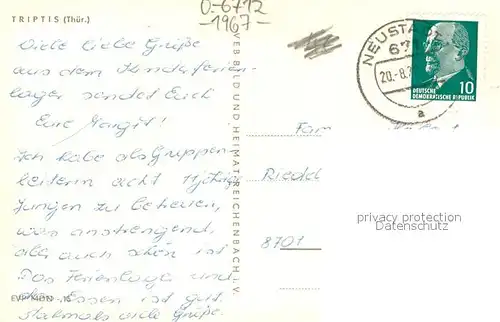 TRIPTIS (Thür.)
O-6712
-1967-
Viele liebe Grüße
aus dem Kinderferien-
lager sendet Euch
Eure Margit!
Ich habe als Gruppen-
leiterin acht 11jährige
Jungen zu betreuen,
was anstrengend,
aber auch schön ist.
Das Ferienlager und
das Essen ist gut.
Nochmals viele Grüße.
VEB BILD UND HEIMAT REICHENBACH i. V.
NEUSTA
67
20.-8.
a
10
DEUTSCHE
DEMOKRATISCHE REPUBLIK
Fam
Riedel
8701
privacy protection
Datenschutz